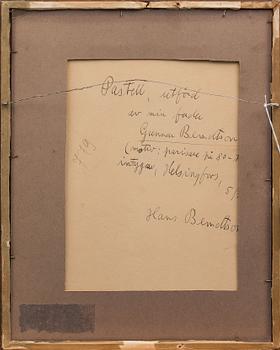 Pastell, utförd
av min fader
Gunnar Berndtson
(motiv: parisare på 80-
intygar, Helsingfors,
Hans Berndtson